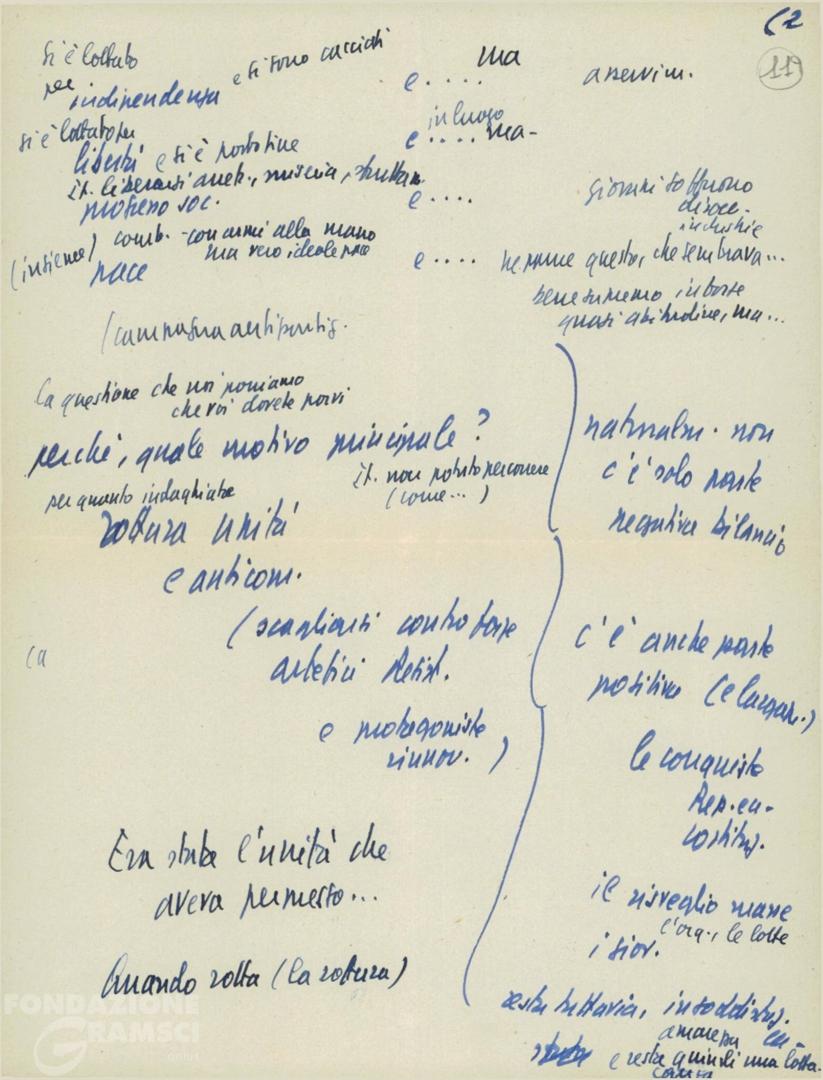 (2
119
si è lottato
per indipendenza e si sono cacciati e.... ma asservim.
si è lottato per
libertà e si è e.... in luogo ma-
it. liberarsi arretr., miseria, sfruttam.
progresso soc. e.... giovani soffrono
disocc.
industrie
(insieme) comb. - con armi alla mano
ma vero ideale pace
pace e.... neppure questo, che sembrava...
bene supremo in forse
quasi abitudine, ma...
(campagna antipartig.
la questione che noi poniamo
che voi dovete porvi
perché, quale motivo principale?
per quanto indaghiate it. non potuto percorrere
(come...)
rottura unità
e anticom.
(scagliarsi contro forze
artefici Resist.
e protagoniste
rinnov.)
la
Era stata l'unità che
aveva permesso...
Quando rotta (la rottura)
naturalm. non
c'è solo parte
negativa bilancio
c'è anche parte
positiva (e largam.)
le conquiste
Rep. e a-
costituz.
il risveglio masse
l'org., le lotte
i giov.
resta tuttavia, insoddisfaz.
amarezza
e resta quindi una lotta.